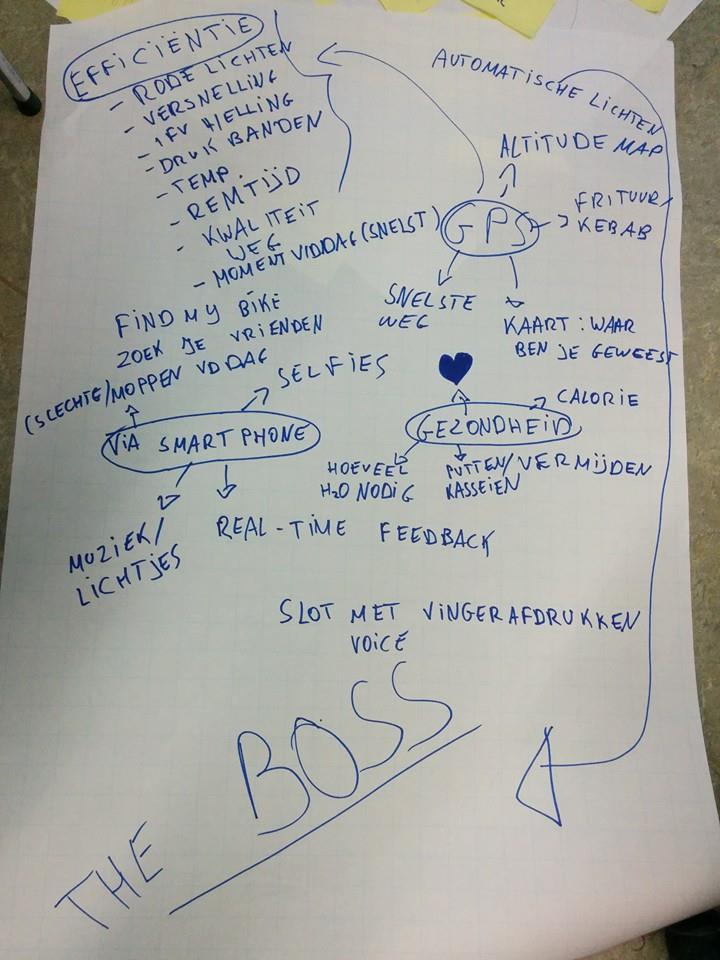 EFFICIËNTIE
- RODE LICHTEN
- VERSNELLING
- IFV HELLING
- DRUK BANDEN
- TEMP.
- REMTIJD
- KWALITEIT
WEG
- MOMENT V/D DAG (SNELST)
AUTOMATISCHE LICHTEN
ALTITUDE MAP
GPS
FRITUUR/
KEBAB
SNELSTE
WEG
KAART: WAAR
BEN JE GEWEEST
FIND MY BIKE
ZOEK JE VRIENDEN
(SLECHTE/MOPPEN VD DAG
SELFIES
VIA SMARTPHONE
MUZIEK/
LICHTJES
REAL-TIME FEEDBACK
CALORIE
GEZONDHEID
HOEVEEL
H2O NODIG
PUTTEN/VERMIJDEN
KASSEIEN
SLOT MET VINGERAFDRUKKEN
VOICE
THE BOSS